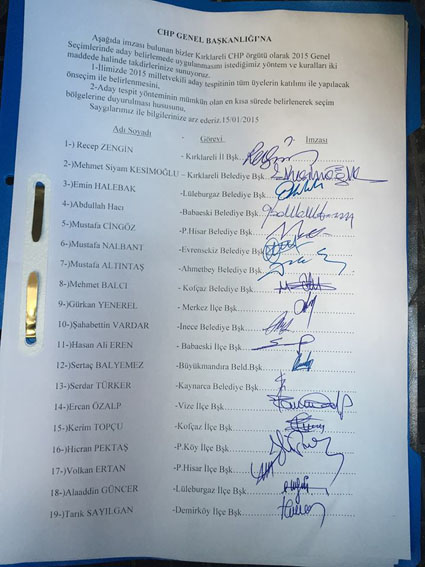 CHP GENEL BAŞKANLIĞI'NA
Aşağıda imzası bulunan bizler Kırklareli CHP örgütü olarak 2015 Genel
Seçimlerinde aday belirlemede uygulanmasını istediğimiz yöntem ve kuralları iki
maddede halinde takdirlerinize sunuyoruz.
1-İlimizde 2015 milletvekili aday tespitinin tüm üyelerin katılımı ile yapılacak
önseçim ile belirlenmesini,
2-Aday tespit yönteminin mümkün olan en kısa sürede belirlenerek seçim
bölgelerine duyurulması hususunu,
Saygılarımız ile bilgilerinize arz ederiz.15/01/2015
Adı Soyadı Görevi İmzası
1-) Recep ZENGİN - Kırklareli İl Bşk.
2-)Mehmet Siyam KESİMOĞLU – Kırklareli Belediye Bşk.
3-)Emin HALEBAK -Lüleburgaz Belediye Bşk.
4-)Abdullah Hacı -Babaeski Belediye Bşk.
5-)Mustafa CİNGÖZ -P.Hisar Belediye Bşk.
6-)Mustafa NALBANT -Evrensekiz Belediye Bşk.
7-)Mustafa ALTINTAŞ -Ahmetbey Belediye Bşk.
8-)Mehmet BALCI - Kofçaz Belediye Bşk.
9-)Gürkan YENEREL - Merkez İlçe Bşk.
10-)Şahabettin VARDAR -İnece Belediye Bşk.
11-)Hasan Ali EREN - Babaeski İlçe Bşk.
12-)Sertaç BALYEMEZ -Büyükmandıra Beld.Bşk.
13-)Serdar TÜRKER -Kaynarca Belediye Bşk.
14-)Ercan ÖZALP -Vize İlçe Bşk.
15-)Kerim TOPÇU -Kofçaz İlçe Bşk.
16-)Hicran PEKTAŞ -P.Köy İlçe Bşk.
17-)Volkan ERTAN -P.Hisar İlçe Bşk.
18-)Alaaddin GÜNCER -Lüleburgaz İlçe Bşk.
19-)Tarık SAYILGAN -Demirköy İlçe Bşk.